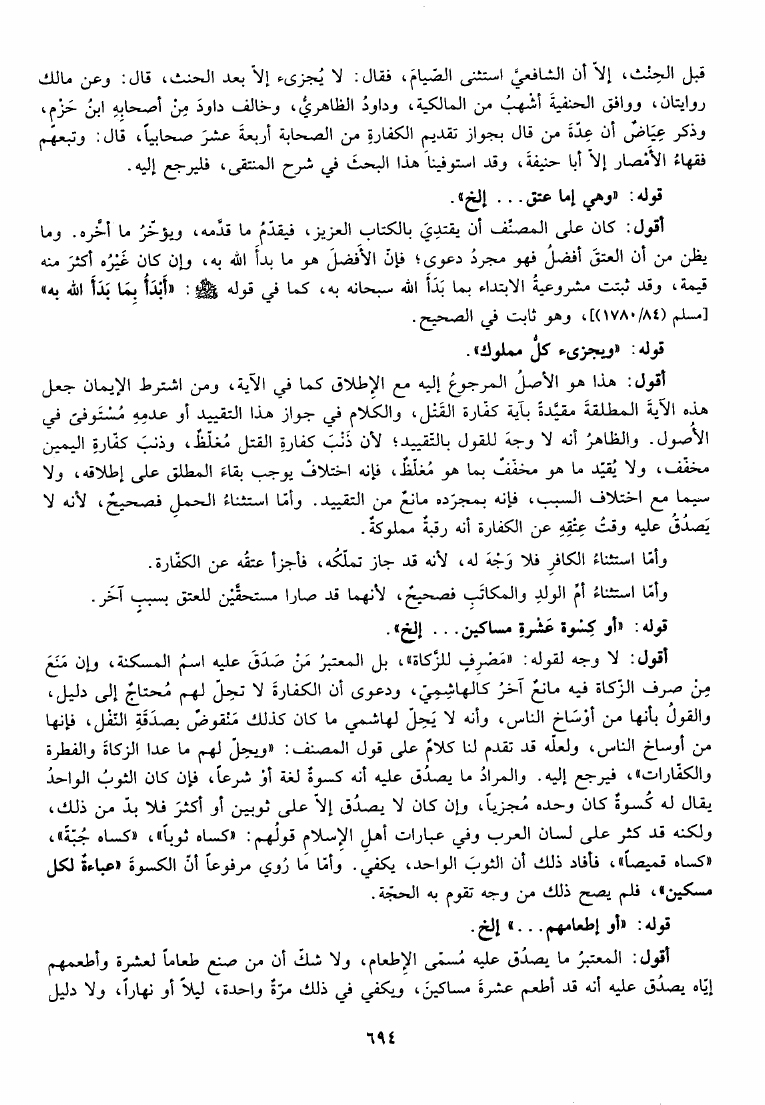 قبل الحِنْث، إلاّ أن الشافعيَّ استثنى الصّيامَ، فقال: لا يُجزىء إلاّ بعد الحنث، قال: وعن مالك
روايتان، ووافق الحنفيةَ أشهبُ من المالكية، وداودُ الظاهريُّ، وخالف داودَ مِنْ أصحابِهِ ابنُ حَزْم،
وذكر عِيَاضٌ أن عِدّةَ من قال بجواز تقديم الكفارةِ من الصحابة أربعةَ عشرَ صحابياً، قال: وتبعهُم
فقهاءُ الأمْصار إلاّ أبا حنيفةَ، وقد استوفينا هذا البحثَ في شرح المنتقى، فليرجع إليه.
قوله: «وهي إما عتق... إلخ».
أقول: كان على المصنّف أن يقتدِيَ بالكتاب العزيز، فيقدّمُ ما قدَّمه، ويؤخّرُ ما أخَّره. وما
يظن من أن العتقَ أفضلُ فهو مجردُ دعوى؛ فإنّ الأفضلَ هو ما بدأ الله به، وإن كان غَيْرُه أكثرَ منه
قيمة، وقد ثبتت مشروعيةُ الابتداء بما بَدَأَ الله سبحانه به، كما في قوله ﷺ: «أَبْدَأُ بِمَا بَدَأَ الله به»
[مسلم (١٧٨٠/٨٤)]، وهو ثابت في الصحيح.
قوله: «ويجزىء كلُّ مملوك».
أقول: هذا هو الأصلُ المرجوعُ إليه مع الإطلاق كما في الآية، ومن اشترط الإيمان جعل
هذه الآيةَ المطلقةَ مقيَّدةً بآية كفّارة القَتْل، والكلام في جواز هذا التقييد أو عدمِهِ مُسْتَوفىً في
الأصول. والظاهرُ أنه لا وجهَ للقول بالتّقييد؛ لأن ذَنْبَ كفارةِ القتل مُغلَّظٌ، وذنبَ كفّارةِ اليمين
مخفّف، ولا يُقيّد ما هو مخفّفٌ بما هو مُغلَّظٌ، فإنه اختلافٌ يوجب بقاءَ المطلق على إطلاقه، ولا
سيما مع اختلاف السبب، فإنه بمجرّده مانعٌ من التقييد. وأمّا استثناءُ الحملِ فصحيحٌ، لأنه لا
يَصدُقُ عليه وقتُ عِتْقِهِ عن الكفارة أنه رقبةٌ مملوكةٌ.
وأمّا استثناءُ الكافرِ فلا وَجْهَ له، لأنه قد جاز تملّكُه، فأجزأ عتقُه عن الكفّارة.
وأمّا استثناءُ أمِّ الولدِ والمكاتَبِ فصحيحٌ، لأنهما قد صارا مستحقَّيْن للعتق بسببٍ آخَر.
قوله: «أو كِسْوة عَشْرةِ مساكين... إلخ».
أقول: لا وجه لقوله: «مَصْرِفٍ للزّكاة»، بل المعتبرُ مَنْ صَدَقَ عليه اسمُ المسكنة، وإن مَنَعَ
مِنْ صرف الزّكاة فيه مانعٌ آخرُ كالهاشِمِيّ، ودعوى أن الكفارةَ لا تحِلّ لهم مُحتاجٌ إلى دليل،
والقولُ بأنها من أوْسَاخ الناس، وأنه لا يَحِلّ لهاشمي ما كان كذلك مَنْقوضٌ بصدَقَةِ النّفْل، فإنها
من أوساخ الناس، ولعلّه قد تقدم لنا كلامٌ على قول المصنف: «ويحلّ لهم ما عدا الزكاةَ والفطرة
والكفّارات»، فيرجع إليه. والمرادُ ما يصدُق عليه أنه كسوةٌ لغة أوْ شرعاً، فإن كان الثوبُ الواحدُ
يقال له كُسوةٌ كان وحده مُجزياً، وإن كان لا يصدُق إلاّ على ثوبين أو أكثرَ فلا بدّ من ذلك،
ولكنه قد كثر على لسان العرب وفي عبارات أهلِ الإسلام قولُهم: «كساه ثوباً»، «كساه جُبّةً»،
«كساه قميصاً»، فأفاد ذلك أن الثوبَ الواحد، يكفي. وأمّا مَا رُوي مرفوعاً أنّ الكسوةَ «عباءةٌ لكل
مسكين»، فلم يصح ذلك من وجه تقوم به الحجّة.
قوله: «أو إطعامهم...» إلخ.
أقول: المعتبرُ ما يصدُق عليه مُسمّى الإطعام، ولا شكّ أن من صنع طعاماً لعشرة وأطعمهم
إيّاه يصدُق عليه أنه قد أطعم عشرةَ مساكينَ، ويكفي في ذلك مرّةٌ واحدة، ليلاً أو نهاراً، ولا دليل
٦٩٤